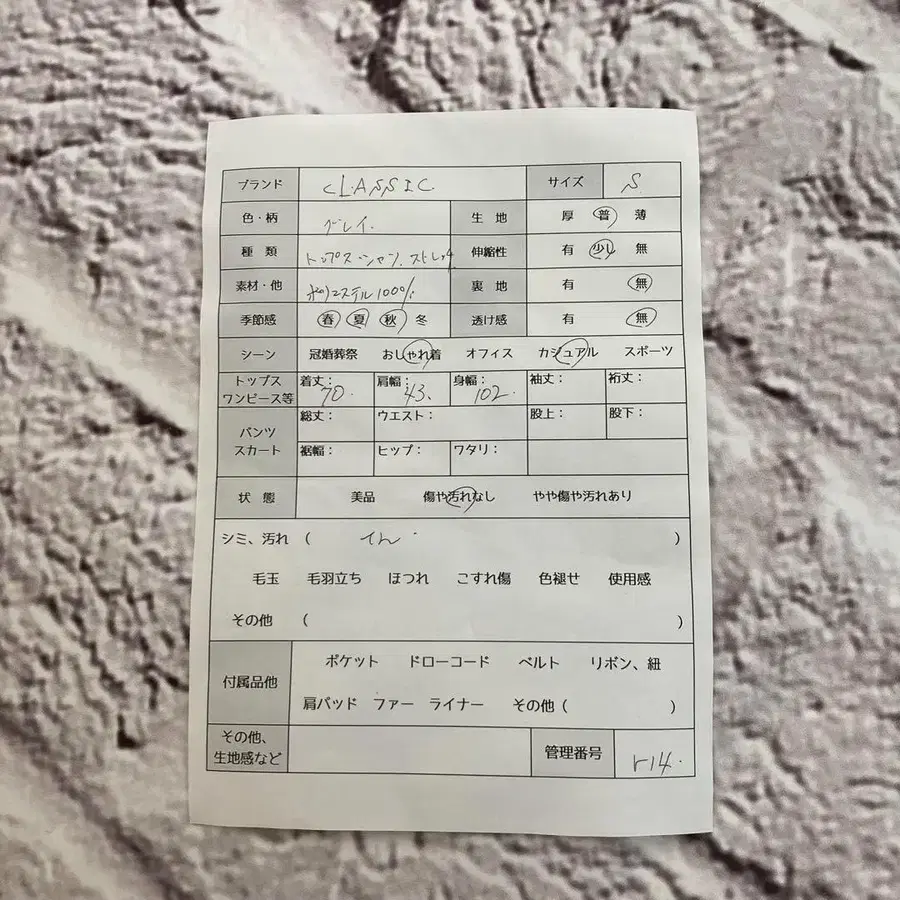 ブランド CLASSIC. サイズ S
色・柄 グレイ. 生地 厚 普 薄
種類 トップス 伸縮性 有 少し 無
素材・他 ポリエステル100% 裏地 有 無
季節感 春 夏 秋 冬 透け感 有 無
シーン 冠婚葬祭 おしゃれ着 オフィス カジュアル スポーツ
トップス ワンピース等 着丈: 70. 肩幅: 43. 身幅: 102. 袖丈: 裄丈:
パンツ スカート 総丈: ウエスト: 股上: 股下:
裾幅: ヒップ: ワタリ:
状態 美品 傷や汚れなし やや傷や汚れあり
シミ、汚れ ( )
毛玉 毛羽立ち ほつれ こすれ傷 色褪せ 使用感
その他 ( )
付属品他 ポケット ドローコード ベルト リボン、紐
肩パッド ファー ライナー その他 ( )
その他、生地感など 管理番号 r14.